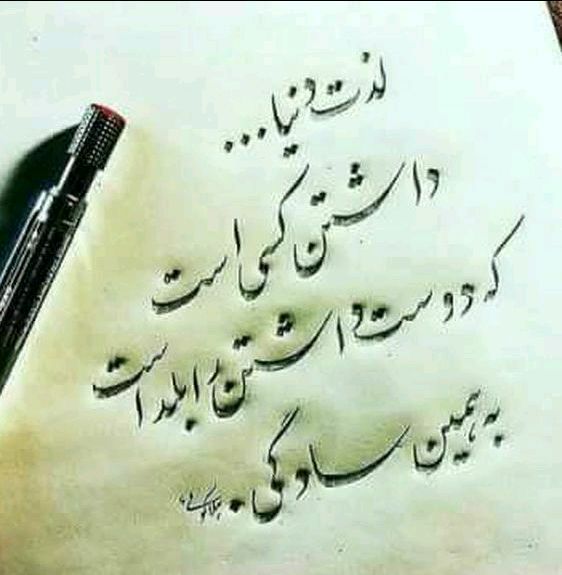 لذت دنیا...
داشتن کسی است
که دوست داشتن را بلد است
به همین سادگی.